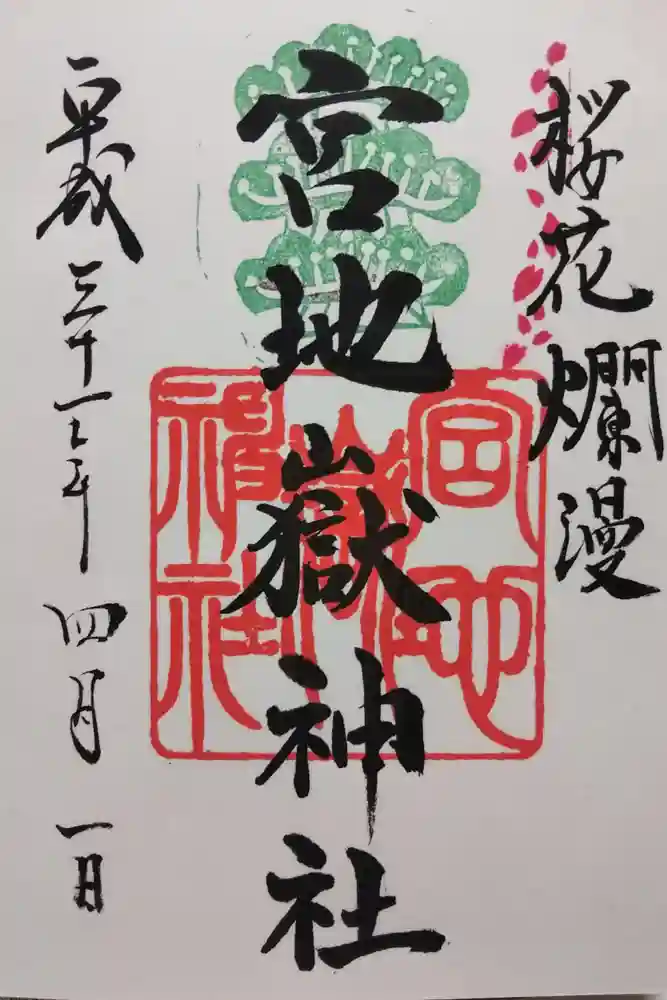 桜花爛漫
宮地嶽神社
宮地嶽神社
平成三十一年四月一日